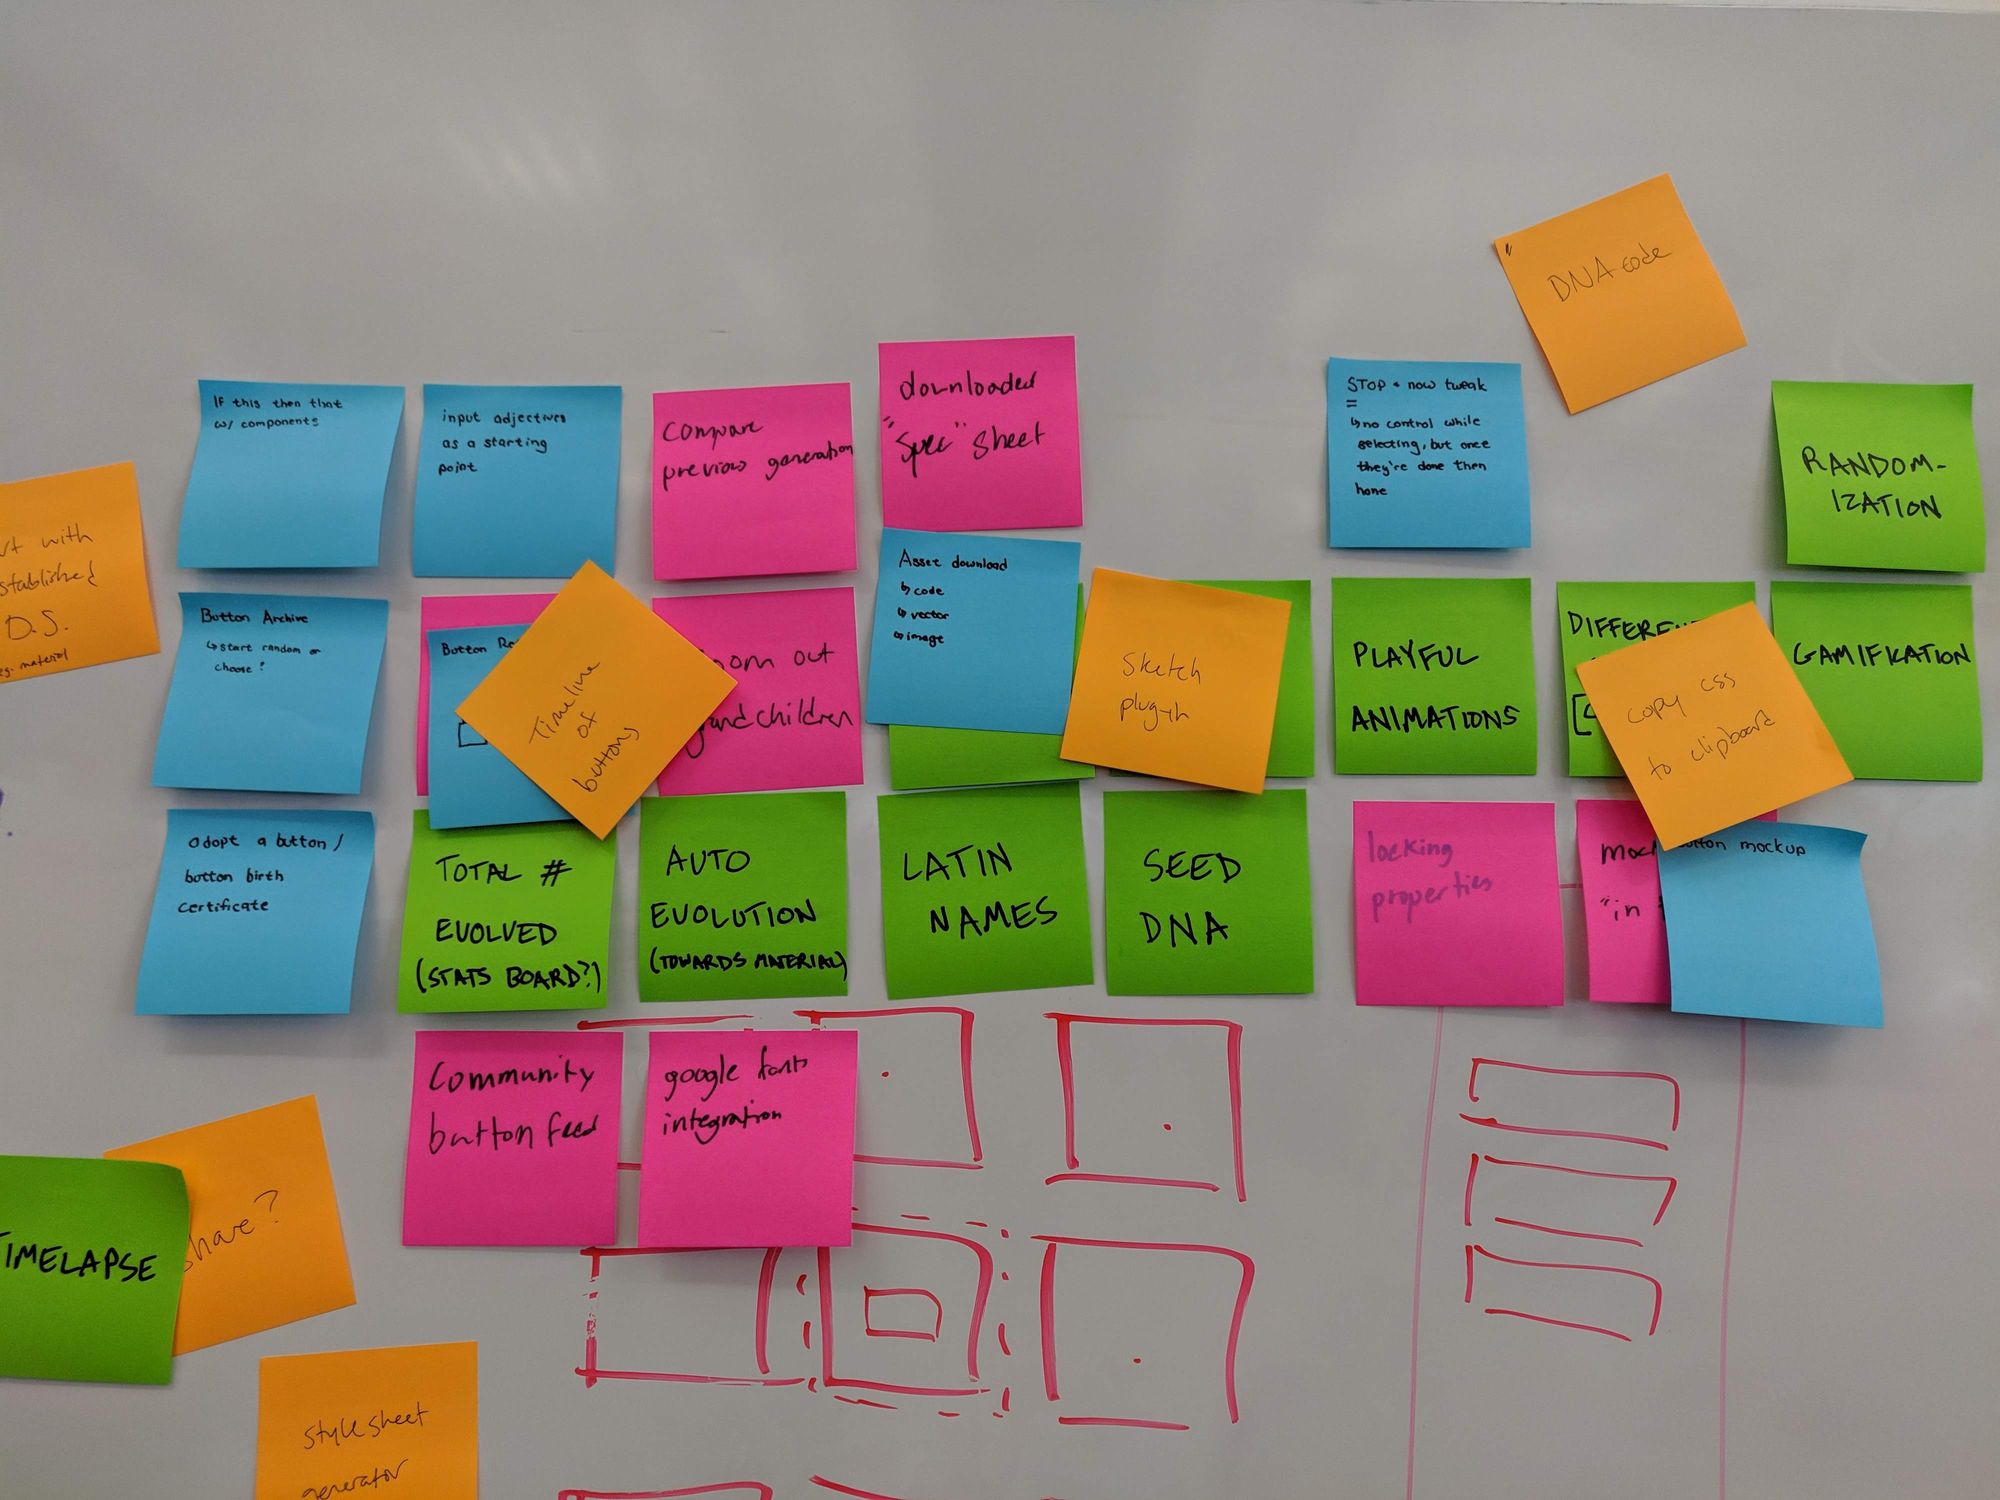 DNA code
IF this then that
w/ components
input adjectives
as a starting
point
Compare
previous generation
downloaded
"Spec" sheet
STOP + now tweak
=
↳ no control while
selecting, but once
they're done then
hone
RANDOM-
IZATION
with
D.S.
material
Button Archive
↳ start random or
choose?
Button
Timeline
of
buttons
out
grandchildren
Asset download
↳ code
↳ vector
↳ image
Sketch
plug-in
PLAYFUL
ANIMATIONS
copy css
to clipboard
GAMIFICATION
Adopt a button/
button birth
certificate
TOTAL #
EVOLVED
(STATS BOARD?)
AUTO
EVOLUTION
(TOWARDS MATERIAL)
LATIN
NAMES
SEED
DNA
locking
properties
"in
mockup
Community
button feed
google fonts
integration
TIMELAPSE
share?
stylesheet
generator